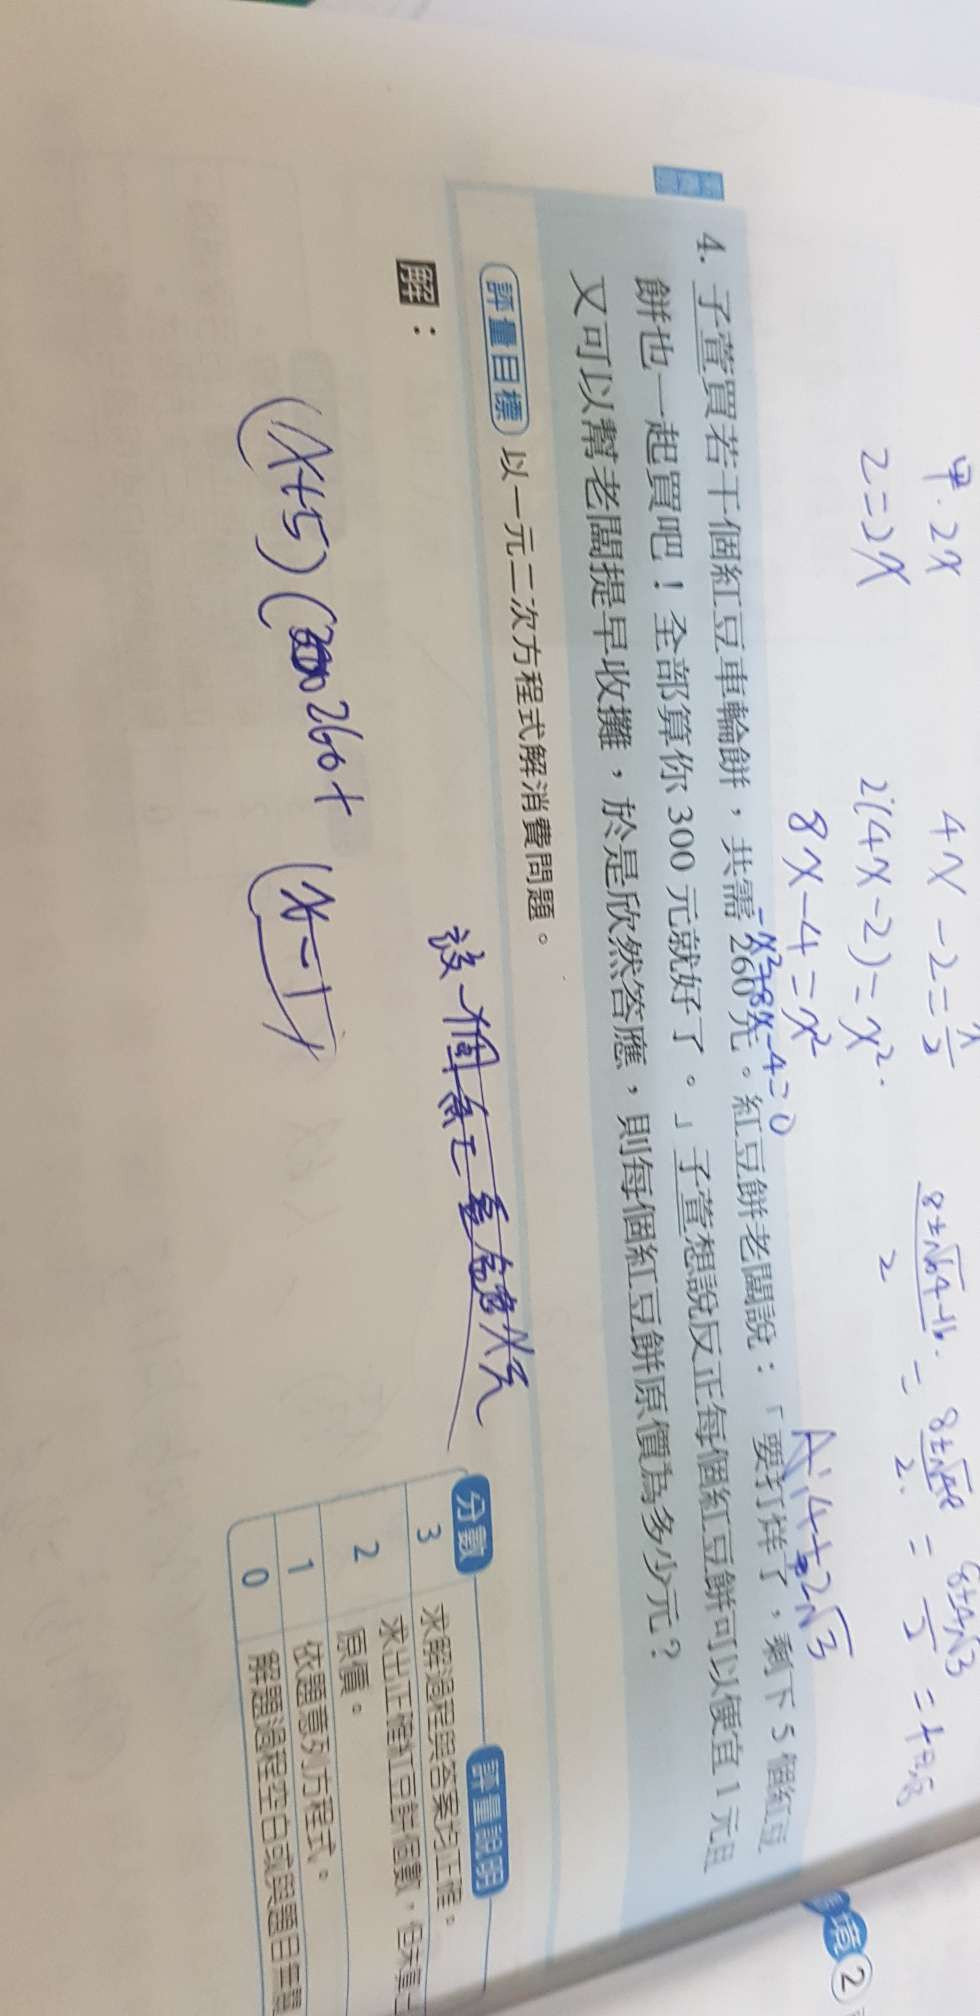 甲.2x
4x-2=x/2
8±√64-16/2=8±√48/2=8±4√3/2
2=2x
2(4x-2)=x²
8x-4=x²
-x²+8x-4=0
A:4±2√3
4. 子萱買若干個紅豆車輪餅,共需260元。紅豆餅老闆說:「要打烊了,剩下5個紅豆
餅也一起買吧!全部算你300元就好了。」子萱想說反正每個紅豆餅可以便宜1元且
又可以幫老闆提早收攤,於是欣然答應,則每個紅豆餅原價為多少元?
評量目標 以一元二次方程式解消費問題。
解:
設一個
x元
(x+5)(260+
(x-1)
分數 評量說明
3 求解過程與答案均正確。
2 求出正確紅豆餅個數,但未寫
原價。
1 依題意列方程式。
0 解題過程空白或與題目無關
境2